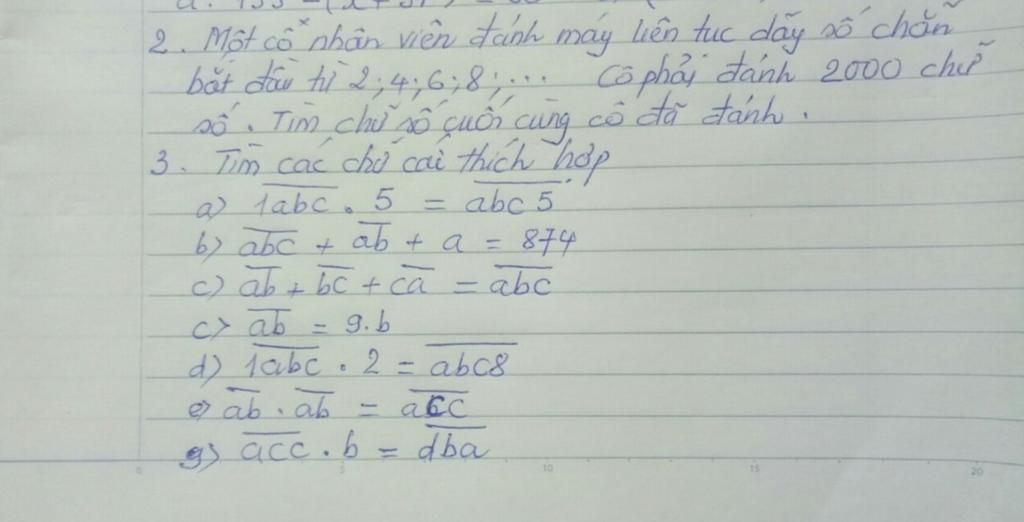 2. Một cô nhân viên đánh máy liên tục dãy số chẵn
bắt đầu từ 2; 4; 6; 8; ... Cô phải đánh 2000 chữ
số. Tìm chữ số cuối cùng cô đã đánh.
3. Tìm các chữ cái thích hợp
a) 1abc . 5 = abc5
b) abc + ab + a = 874
c) ab + bc + ca = abc
c) ab = 9.b
d) 1abc . 2 = abc8
e) ab . ab = acc
g) acc . b = dba
0 5 10 15 20